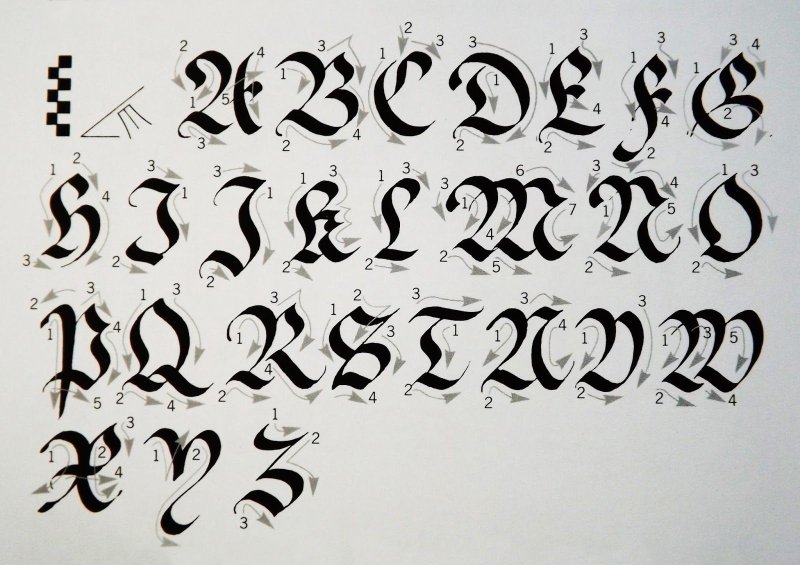 A B C D E F G
H I J K L M N O
P Q R S T U V W
X Y Z